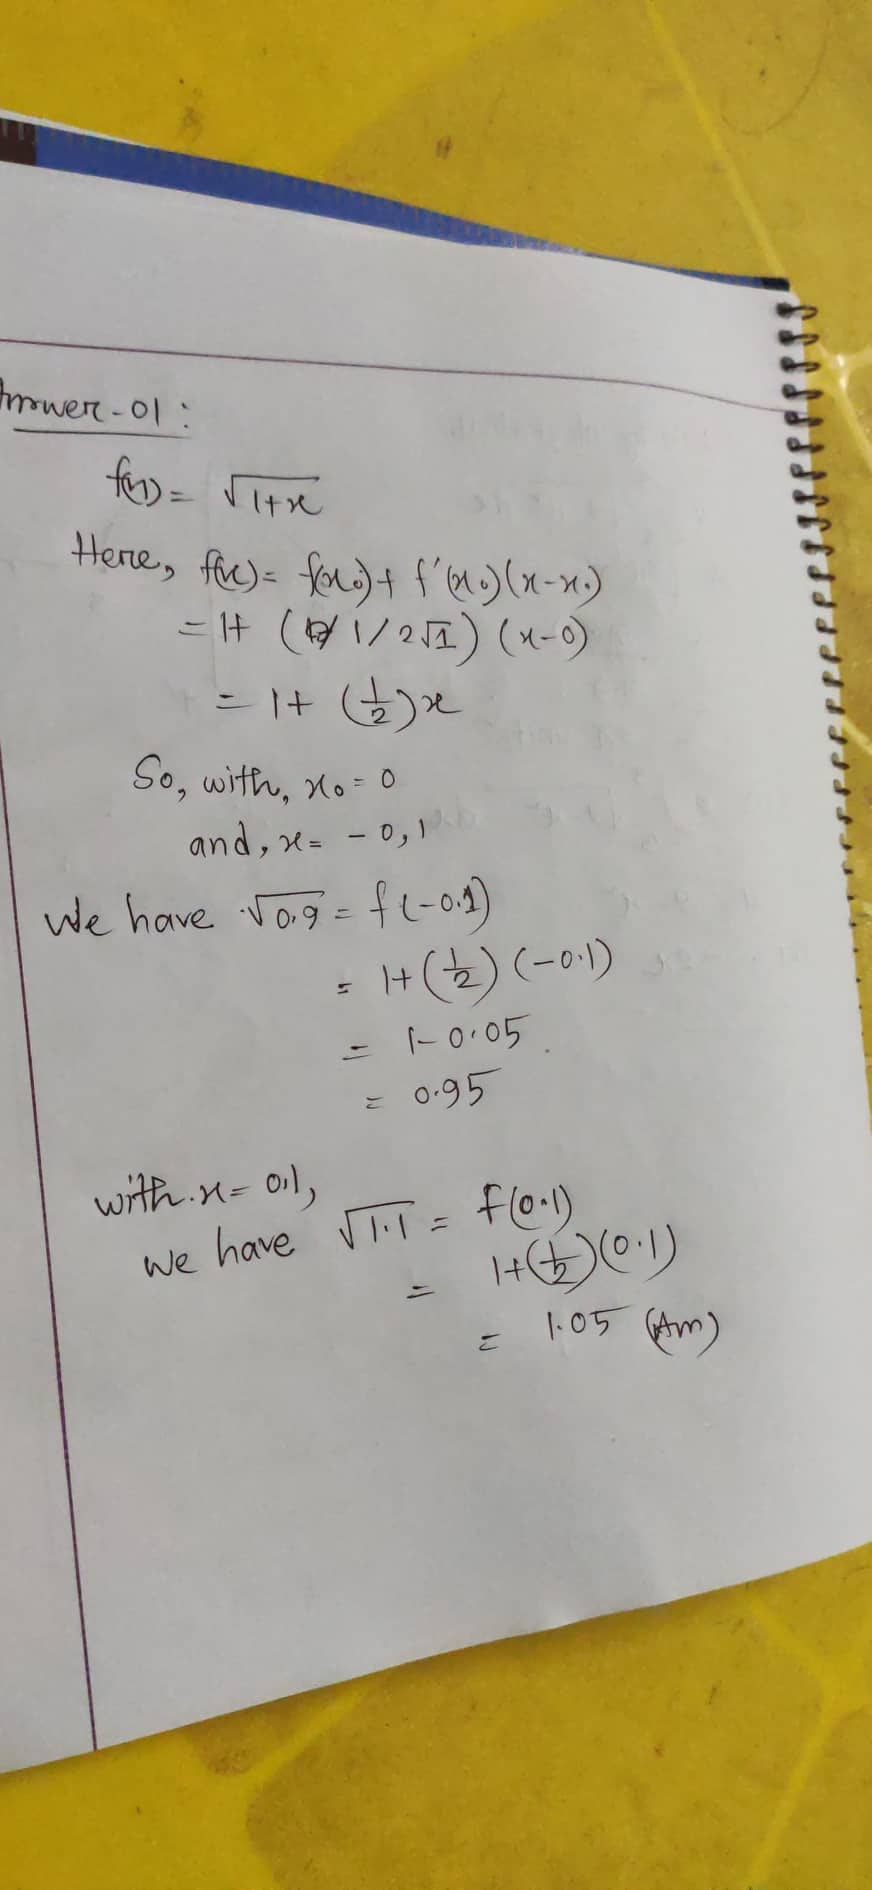 Answer-01:
f(x) = √1+x
Here, f(x) = f(x₀) + f'(x₀)(x-x₀)
= 1+ (1/2√1) (x-0)
= 1+ (1/2)x
So, with, x₀ = 0
and, x = -0,1
We have √0.9 = f(-0.1)
= 1+(1/2) (-0.1)
= 1-0.05
= 0.95
with x = 0.1,
we have √1.1 = f(0.1)
= 1+(1/2)(0.1)
= 1.05 (Am)